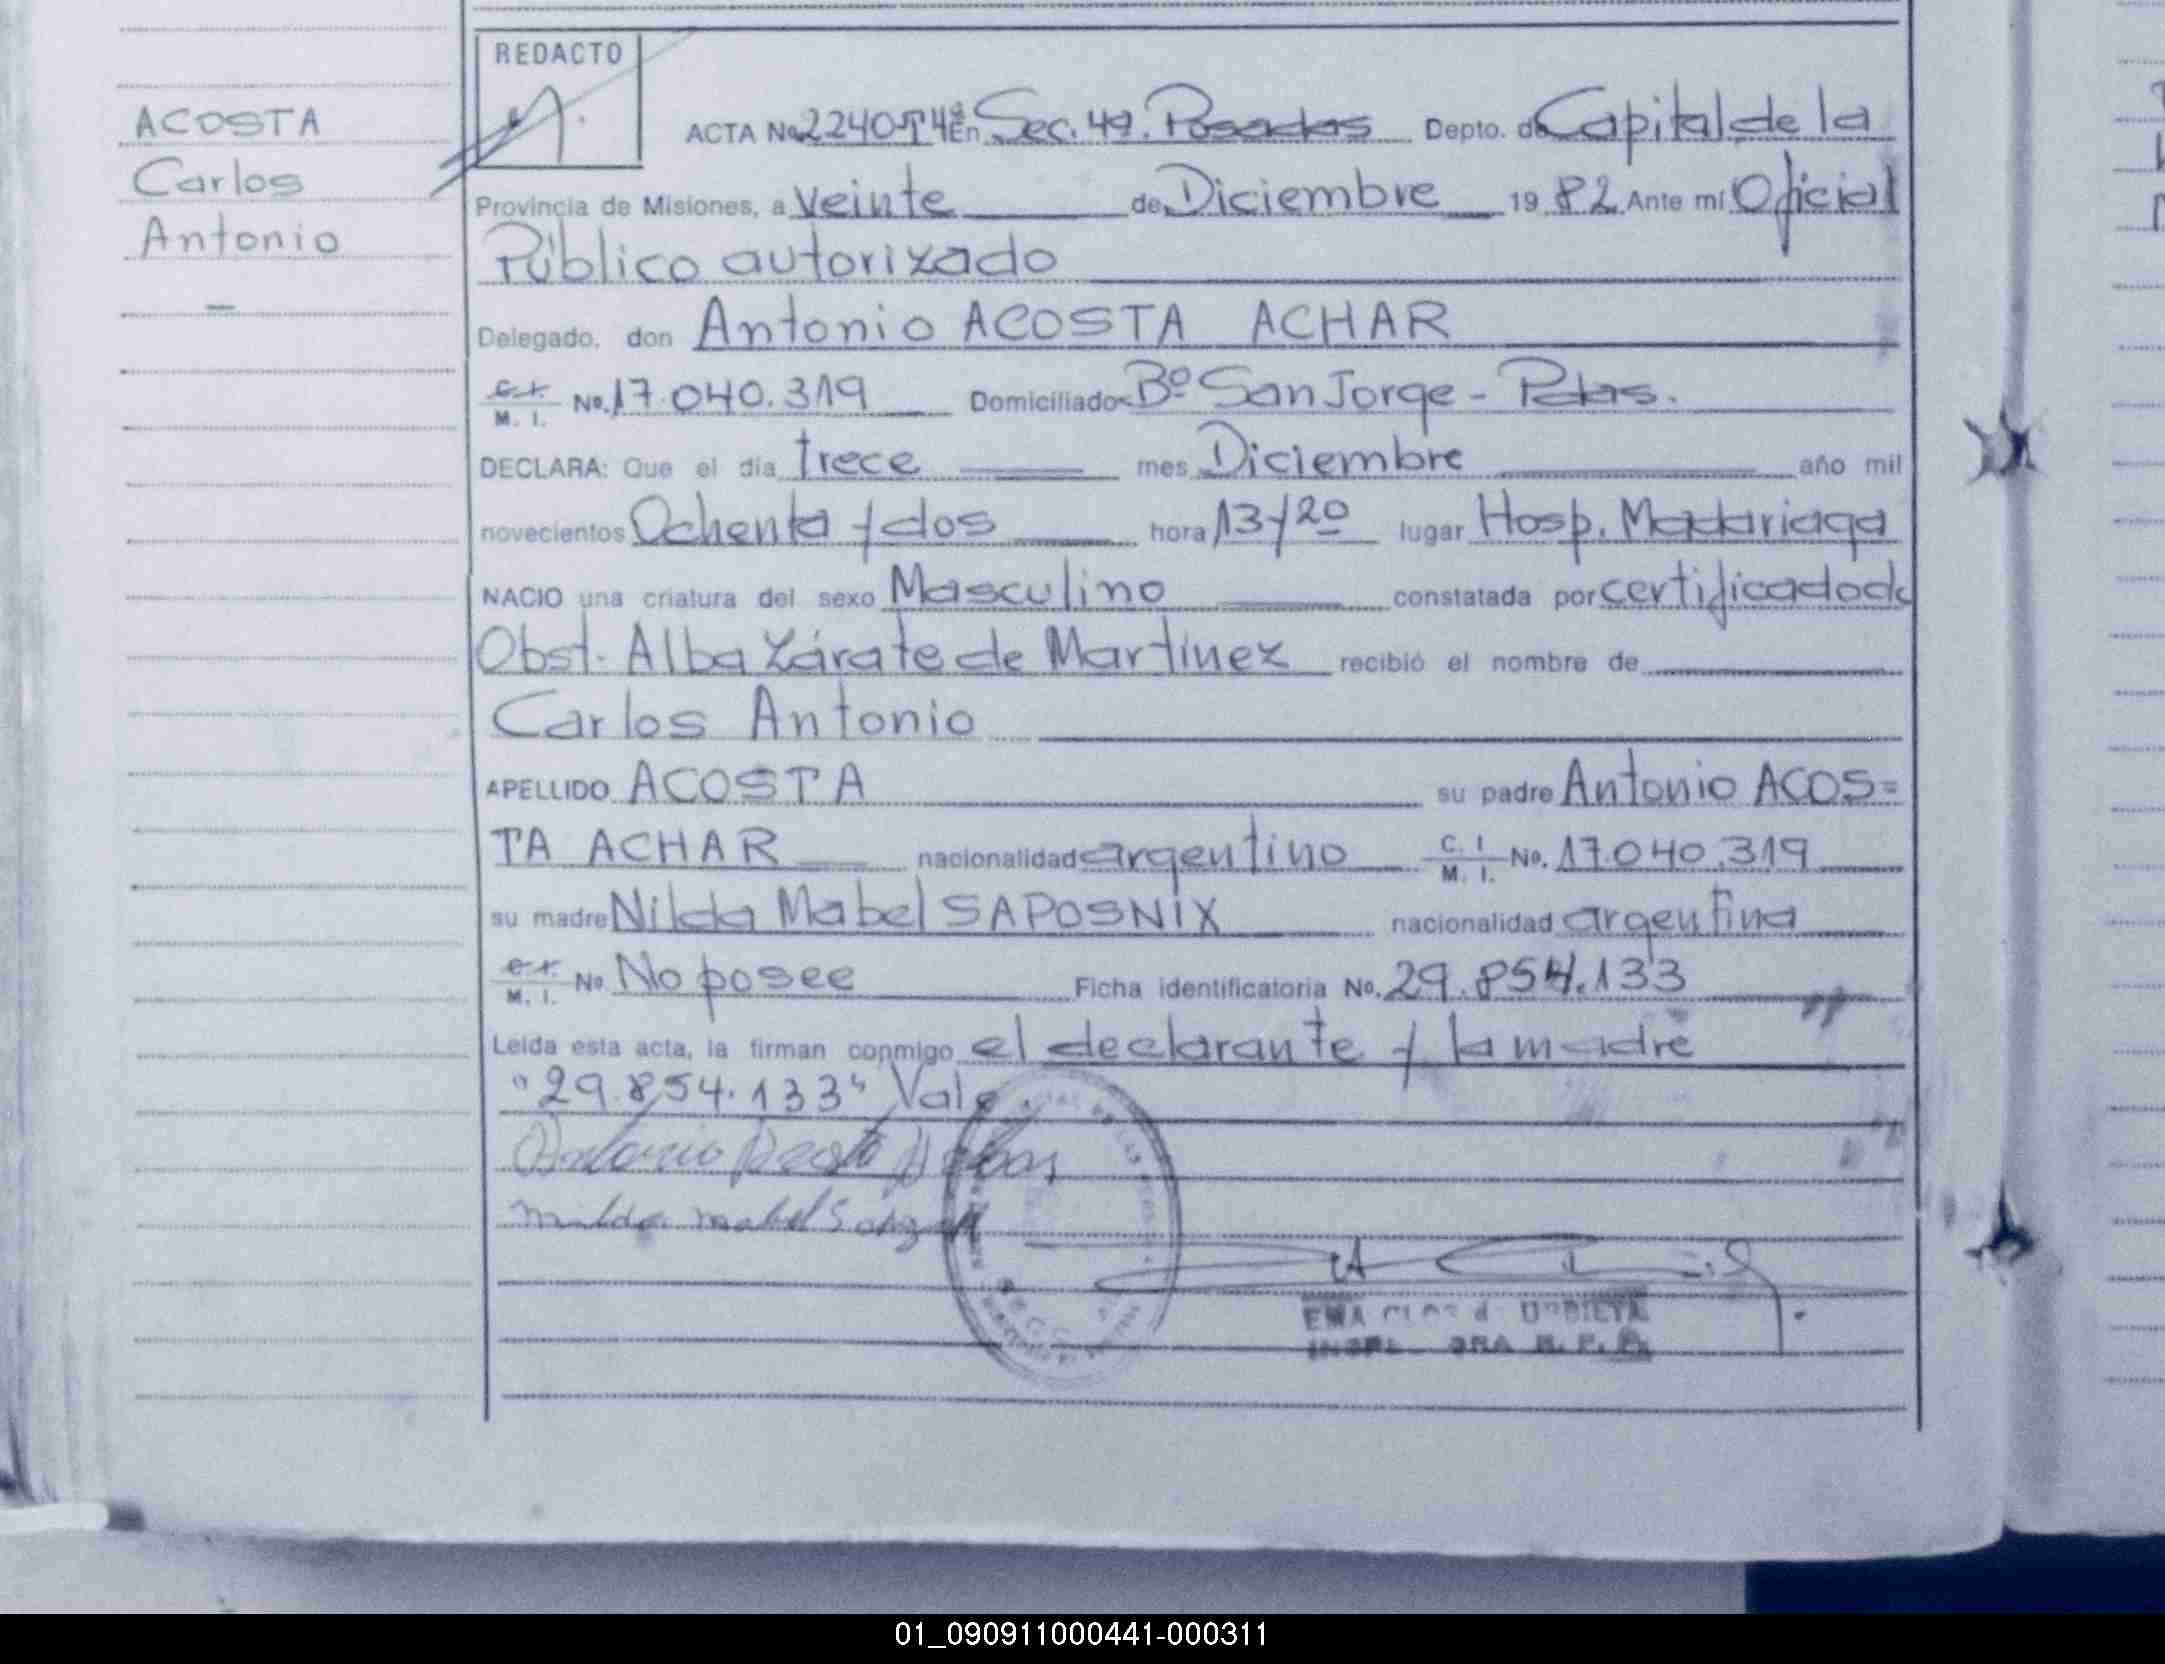 REDACTO
ACOSTA
Carlos
Antonio
ACTA No 2240 T4º En Sec. 4ª. Posadas Depto. de Capital de la
Provincia de Misiones, a veinte de Diciembre 1982 Ante mí Oficial
Público autorizado
Delegado, don Antonio ACOSTA ACHAR
C.I. M. I. No. 17.040.319 Domiciliado Bº San Jorge - Pdas.
DECLARA: Que el día trece mes Diciembre año mil
novecientos Ochenta y dos hora 13y20 lugar Hosp. Madariaga
NACIO una criatura del sexo Masculino constatada por certificado de
Obst. Alba Zárate de Martínez recibió el nombre de
Carlos Antonio
APELLIDO ACOSTA su padre Antonio ACOS=
TA ACHAR nacionalidad argentino C. I. M. I. No. 17.040.319
su madre Nilda Mabel SAPOSNIX nacionalidad argentina
C.I. M. I. No No posee Ficha identificatoria No. 29.854.133
Leída esta acta, la firman conmigo el declarante y la madre
"29.854.133" Vale
Antonio Acosta
EMA
01_090911000441-000311